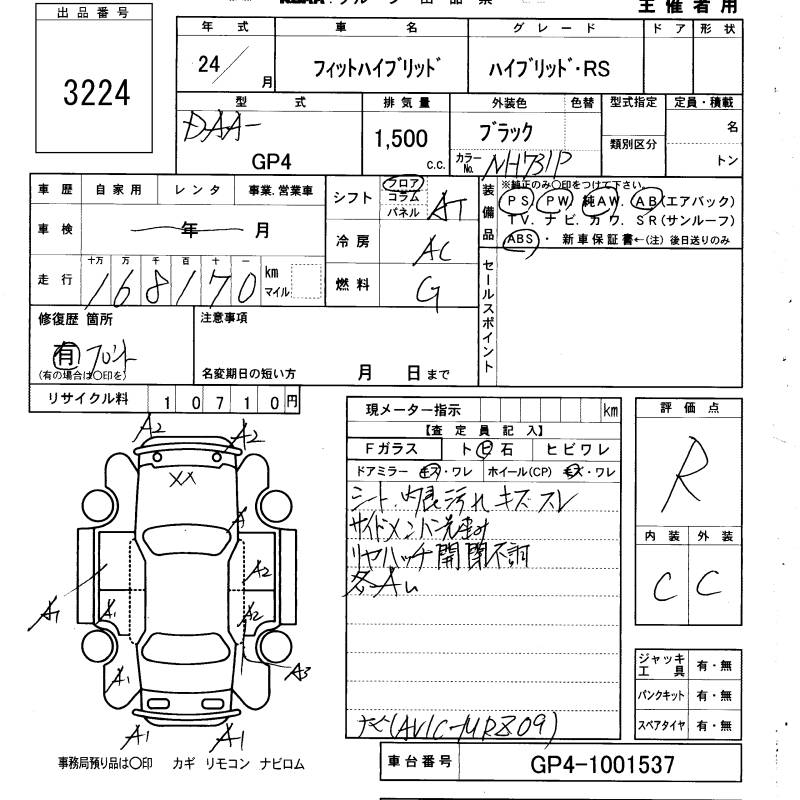 出品番号
主催者用
3224
年式 車名 グレード ドア 形状
24/ 月 フィットハイブリッド ハイブリッド・RS
型式 排気量 外装色 色替 型式指定 定員・積載
DAA-
GP4
1,500 c.c.
ブラック
カラーNo. NH731P
類別区分
名
トン
車歴 自家用 レンタ 事業.営業車
車検 年 月
走行 十万 万 千 百 十 一
168170 km マイル
シフト フロア コラム パネル AT
冷房 AC
燃料 G
装備品
※純正のみ○印をつけて下さい。
PS. PW. 純AW. AB(エアバック)
TV. ナビ. カワ. SR(サンルーフ)
ABS・ 新車保証書←(注)後日送りのみ
セールスポイント
修復歴 箇所
有 フロント
(有の場合は○印を)
注意事項
名変期日の短い方 月 日まで
リサイクル料 10710円
現メーター指示 km
【査定員記入】
Fガラス ト飛石 ヒビワレ
ドアミラー キズ・ワレ ホイール(CP) キズ・ワレ
シート、内張汚れ キズ スレ
サイドメンバー先歪み
リヤハッチ開閉不調
各A
ナビ(AVIC-MRZ09)
評価点
R
内装 外装
C C
ジャッキ工具 有・無
パンクキット 有・無
スペアタイヤ 有・無
A2 A2
XX
A
A2
A1 A1 A2
A1 A3
A1 A1
事務局預り品は○印 カギ リモコン ナビロム
車台番号 GP4-1001537